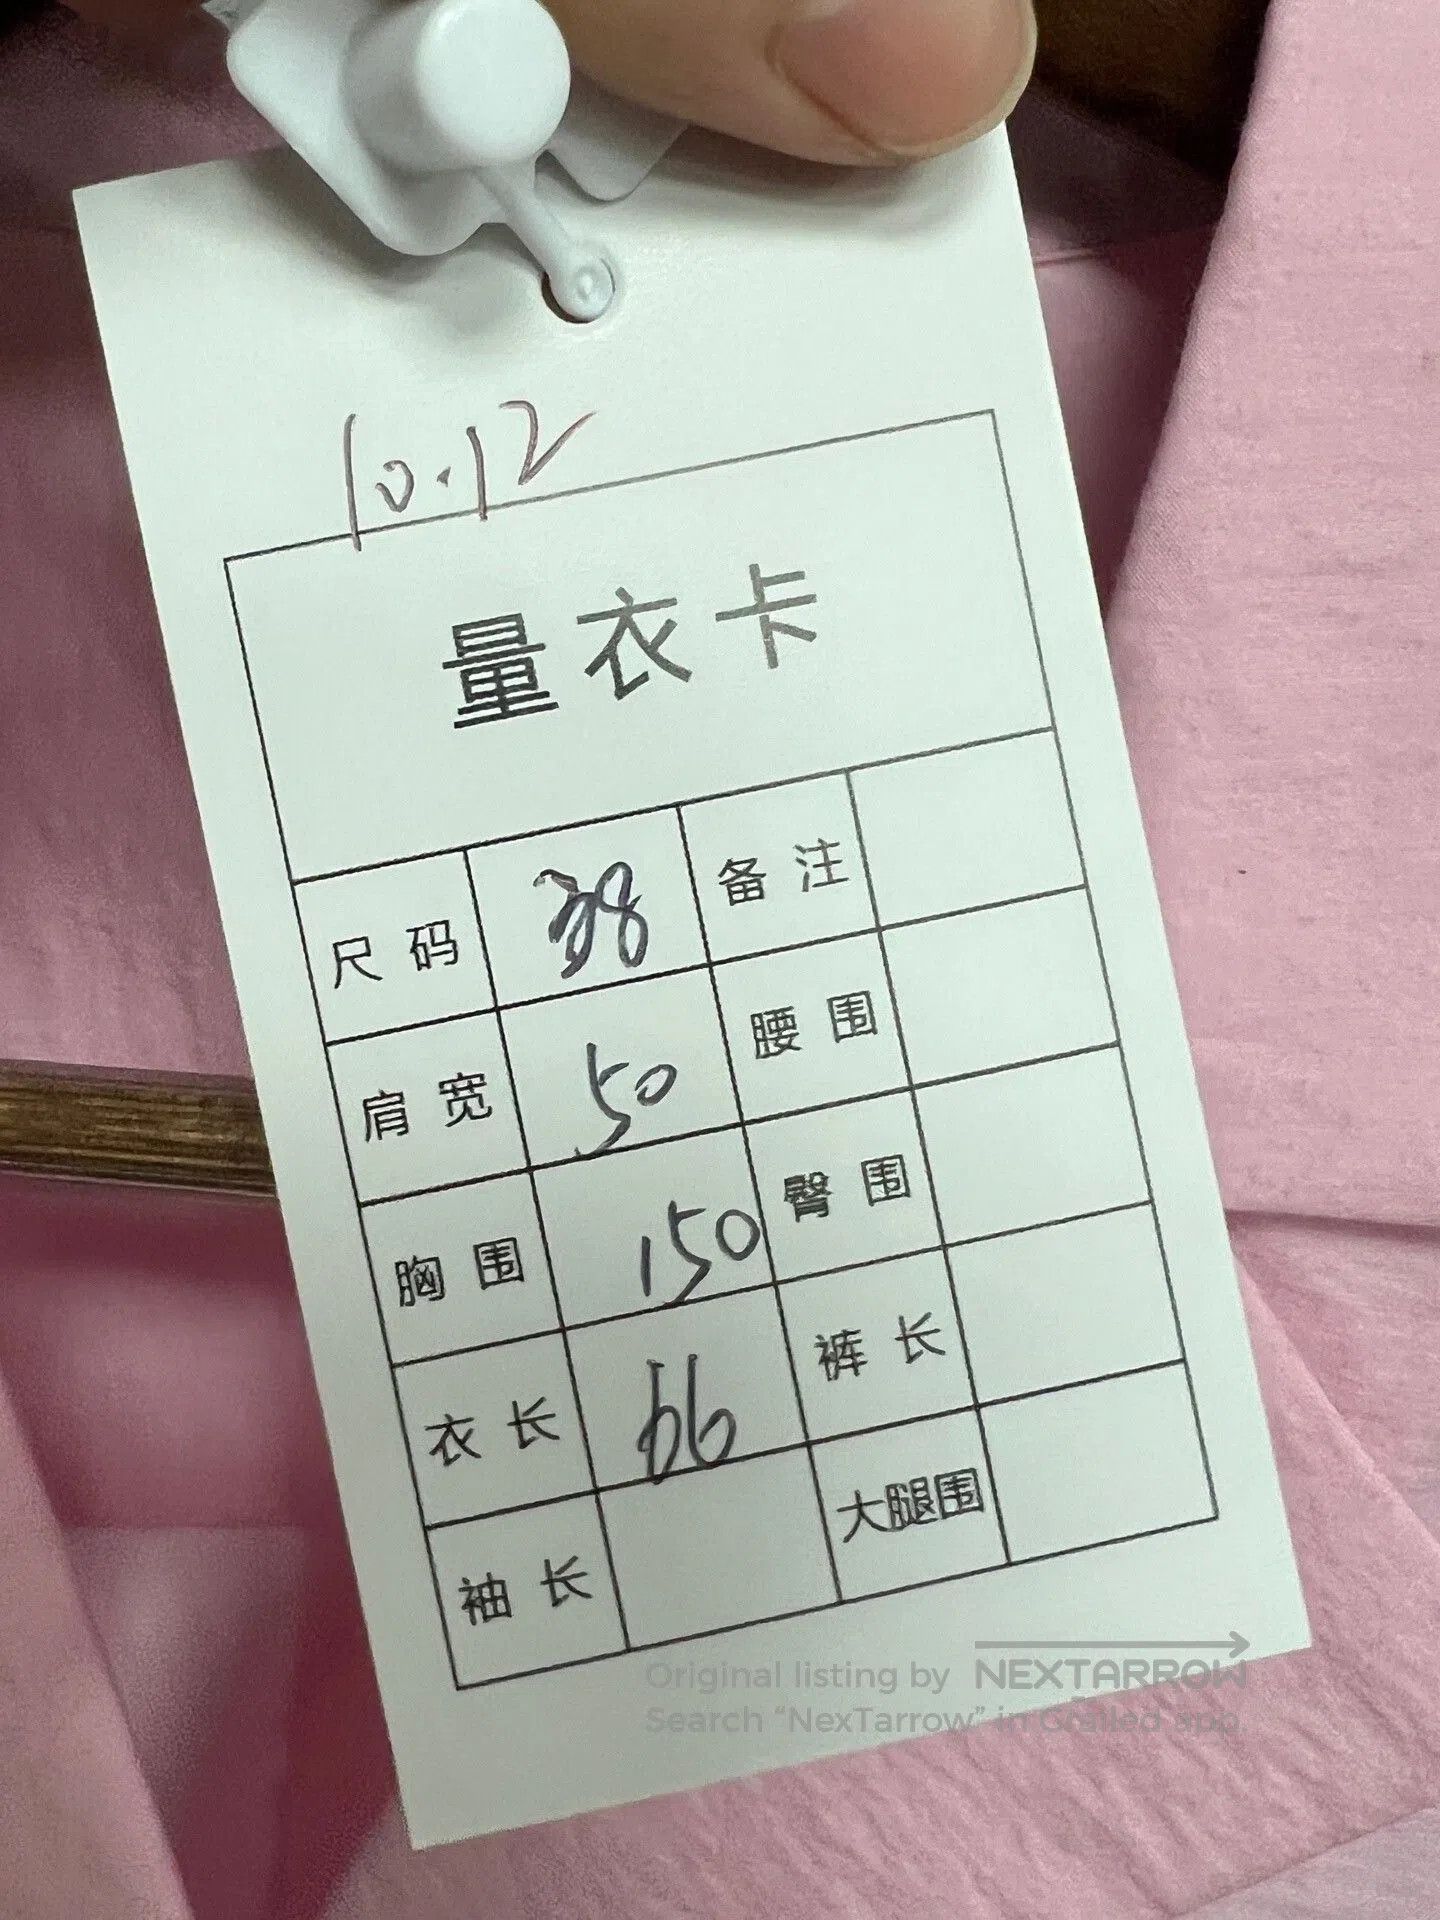 10.12
量衣卡
尺码 38 备注
肩宽 50 腰围
胸围 150 臀围
衣长 66 裤长
袖长 大腿围
Original listing by NEXTARROW
Search “NexTarrow” in Grailed app.